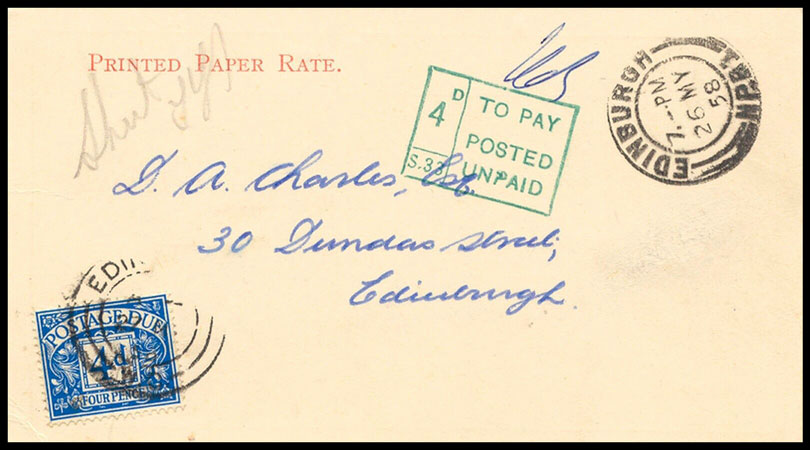 PRINTED PAPER RATE.
4D
TO PAY
POSTED
UNPAID
S.33
EDINBURGH
7.-PM
26 MY
58
D. A. Charles, Esq.
30 Dundas Street,
Edinburgh.
EDIN
POSTAGE DUE
4d
FOUR PENCE